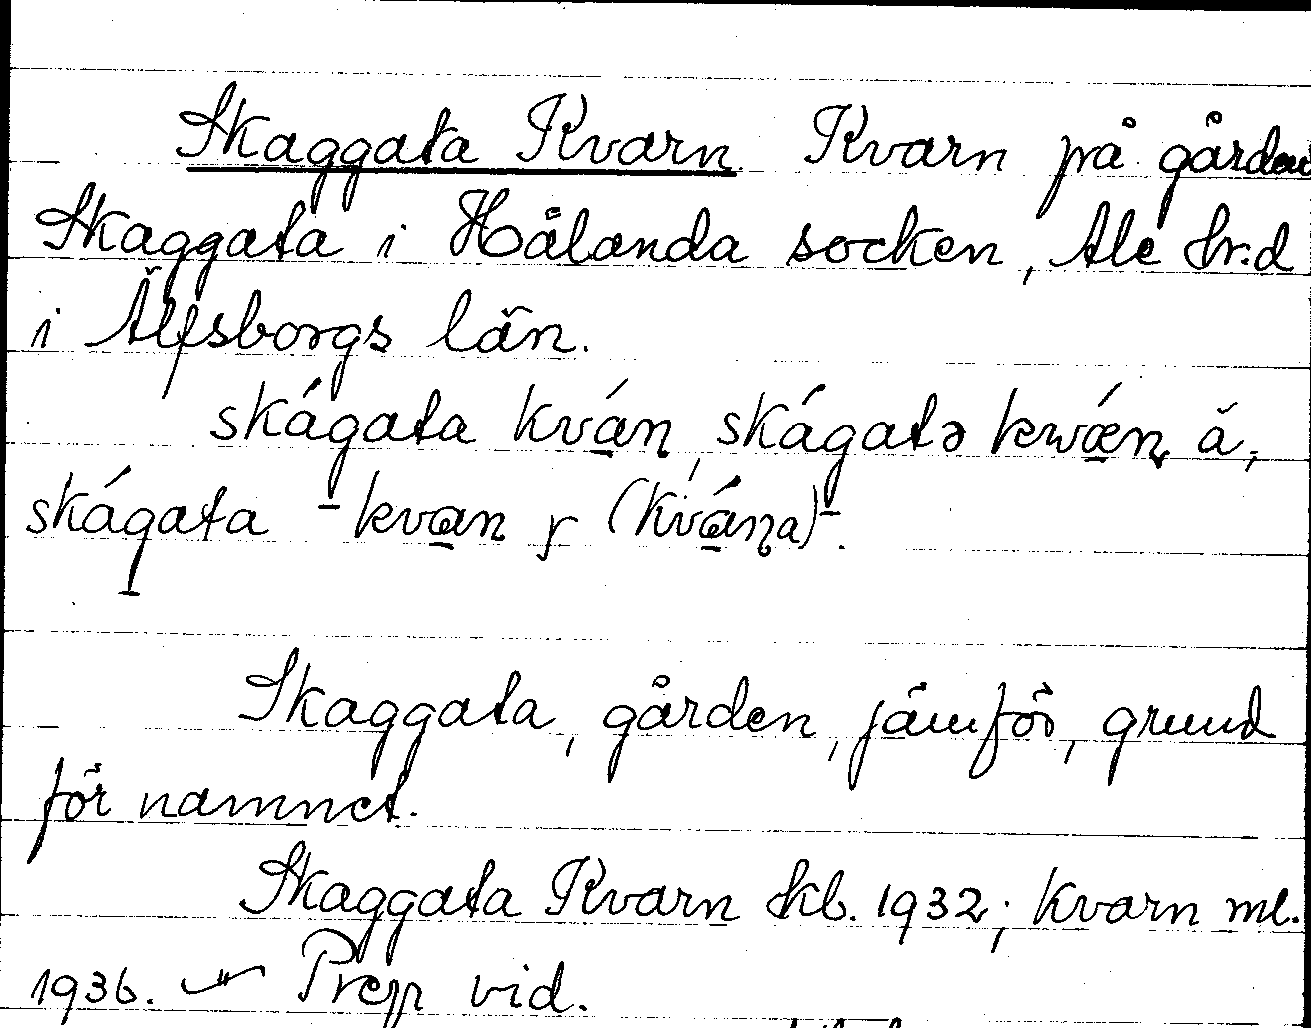 Skaggata Kvarn. Kvarn på gården
Skaggata i Hålanda socken, Ale hr:d
i Älfsborgs län.
skágata kván, skágatə kwǽn, ă,
skágata -kvan r (kvána)-.
Skaggata, gården, jämför, grund
för namnet.
Skaggata Kvarn kb. 1932; kvarn ml.
1936. — Prep vid.